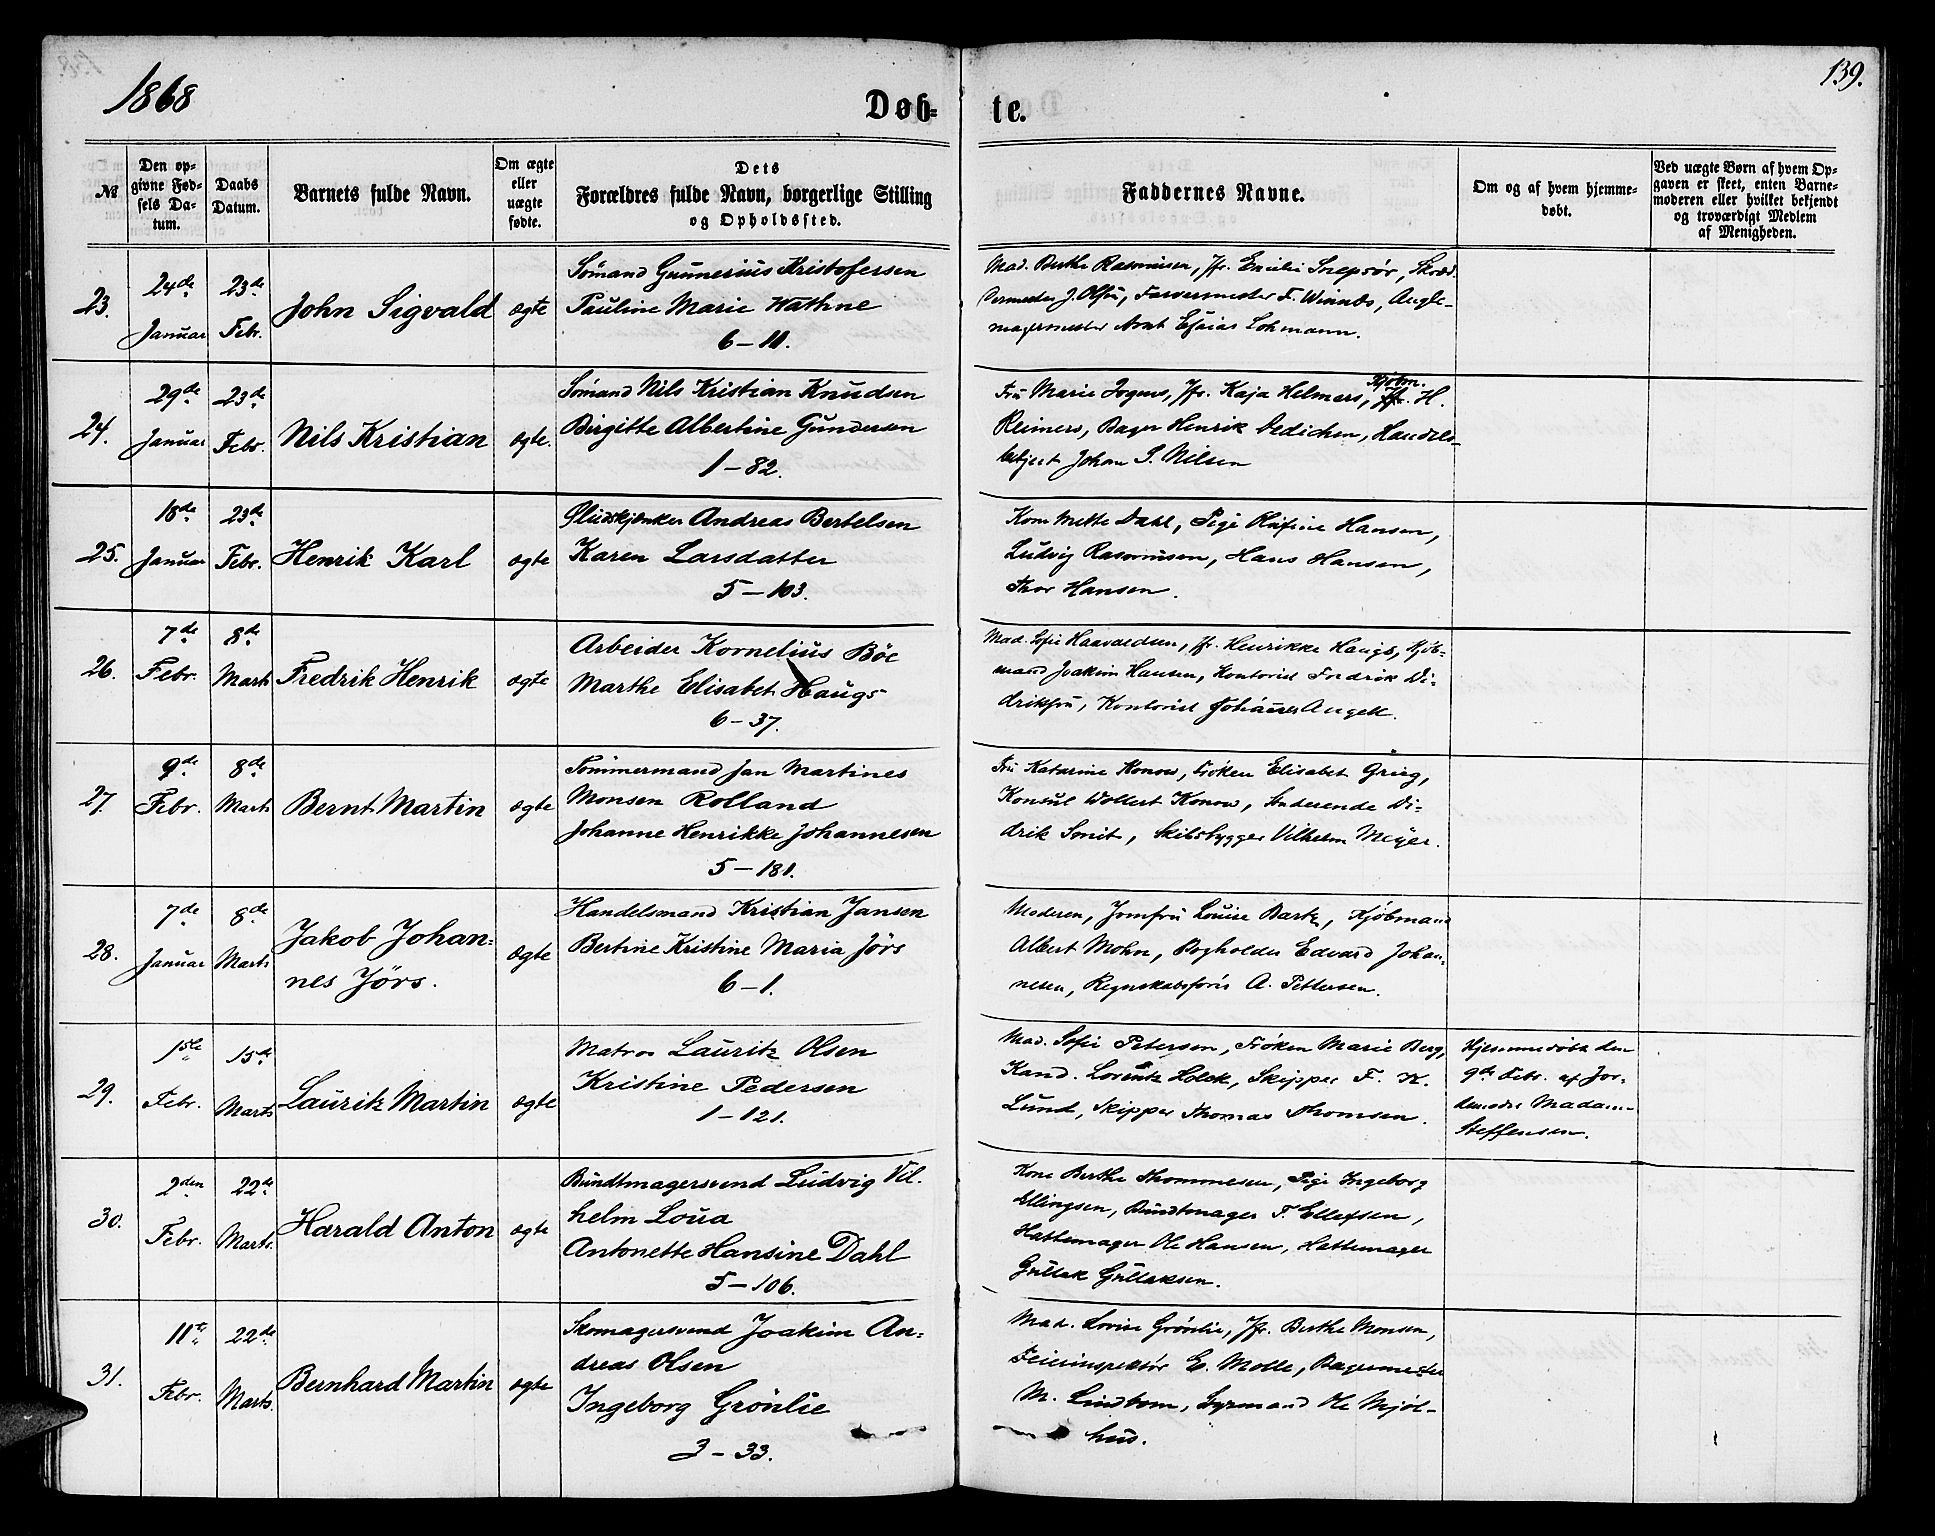 1868
139.
Døb-
te.
№
Den op-
givne Fød-
sels Da-
tum.
Daabs
Datum.
Barnets fulde Navn.
Om ægte
eller
uægte
fødte.
Dets
Forældres fulde Navn, borgerlige Stilling
og Opholdssted.
Faddernes Navne.
Om og af hvem hjemme-
døbt.
Ved uægte Børn af hvem Op-
gaven er skeet, enten Barne-
moderen eller hvilket bekjendt
og troværdigt Medlem
af Menigheden.
23.
24de
Januar
23de
Febr.
John Sigvald
ægte
Sømand Gunnerius Kristofersen
Pauline Marie Wathne
6-11.
Mad. Berthe Rasmusen, Jfr. Emilie Snepsør, Skræd
dermester J. Olsen, Farvermester F. Winnæs, Angle-
magermester Arnt Esaias Lohmann.
24.
29de
Januar
23de
Febr.
Nils Kristian
ægte.
Sømand Nils Kristian Knudsen
Birgitte Albertine Gundersen
1-82.
Fru Marie, Jfr. Kaja Helmers, Kjøbm. H.
Reimers, Bager Henrik Dedichen, Handels-
betjent Johan S. Nilsen
25.
18de
Januar
23de
Febr.
Henrik Karl
ægte
Øludskjænker Andreas Bertelsen
Karen Larsdatter
5-103.
Kone Mette Dahl, Pige Olufine Hansen,
Ludvig Rasmusen, Hans Hansen,
Thor Hansen.
26.
7de
Febr.
8de
Marts
Fredrik Henrik
ægte
Arbeider Kornelius Böe
Marthe Elisabet Haugs
6-37.
Mad. Sofie Haavardsen, Jfr. Henrikke Haugs, Kjøb-
mand Joakim Hansen, Kontorist Fredrik Di-
driksen, Kontorist Johannes Angell.
27.
9de
Febr.
8de
Marts
Bernt Martin
ægte
Tømmermand Jan Martines
Monsen Rolland
Johanne Henrikke Johannesen
5-181.
Fru Katarine Konow, Frøken Elisabet Grieg,
Konsul Wollert Konow, Studerende Di-
drik Smit, Skibsbygger Vilhelm Meyer.
28.
7de
Januar
8de
Marts
Jakob Johan-
nes Jörs.
ægte
Handelsmand Kristian Jansen
Bertine Kristine Maria Jörs
6-1.
Moderen, Jomfru Louise Bartz, Kjøbmand
Albert Mohn, Bogholder Edvard Johan-
nesen, Regnskabsfører A. Pettersen.
29.
1ste
Febr.
15de
Marts
Lauritz Martin
ægte
Matros Lauritz Olsen
Kristine Pedersen
1-121.
Mad. Sofie Petersen, Frøken Marie Berg,
Kand. Lorentz Holck, Skipper F. K.
Lund, Skipper Thomas Thomsen.
Hjemmedøbt den
9de Febr. af Jor-
demoder Madam
Steffensen.
30.
2den
Febr.
22de
Marts.
Harald Anton
ægte
Bundtmagersvend Ludvig Vil-
helm Loua
Antonette Hansine Dahl
5-106.
Kone Berthe Thommesen, Pige Ingeborg
Ellingsen, Bundtmager T. Ellefsen,
Hattemager Ole Hansen, Hattemager
Gullak Gullaksen.
31.
11te
Febr.
22de
Marts.
Bernhard Martin
ægte
Skomagersvend Joakim An-
dreas Olsen
Ingeborg Grönlie
3-33.
Mad. Lovise Grönlie, Jfr. Berthe Monsen,
Feierinspektör E. Molle, Bagermester
M. Lindbom, Styrmand Ole Mjøl-
hus.